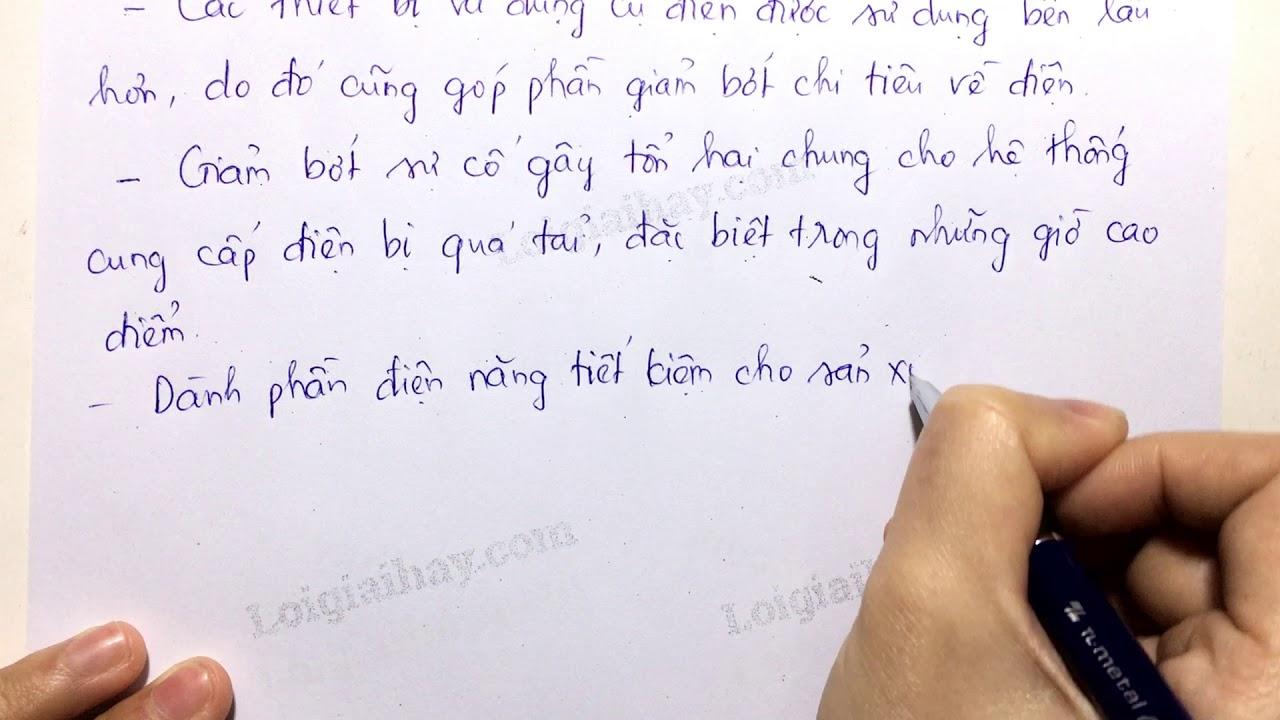 - Các thiết bị và dụng cụ điện được sử dụng bền lâu
hơn, do đó cũng góp phần giảm bớt chi tiêu về điện.
- Giảm bớt sự cố gây tổn hại chung cho hệ thống
cung cấp điện bị quá tải, đặc biệt trong những giờ cao
điểm.
- Dành phần điện năng tiết kiệm cho sản x
Loigiaihay.com
Loigiaihay.com
Loigiaih
π-metal